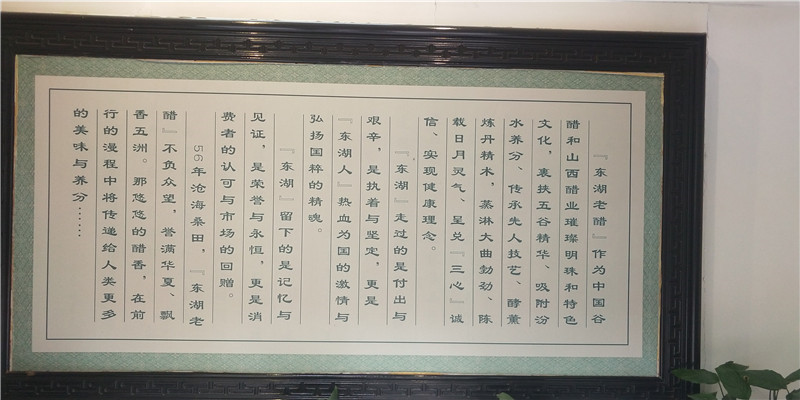 『东湖老醋』作为中国谷
醋和山西醋业璀璨明珠和特色
文化，裹挟五谷精华、吸附汾
水养分、传承先人技艺、酵薰
炼丹精术，蒸淋大曲勃勃、陈
载日月灵气、呈兑『三心』诚
信、实现健康理念。
『东湖』走过的是付出与
艰辛，是执着与坚定，更是
『东湖人』热血为国的激情与
弘扬国粹的精魂。
『东湖』留下的是记忆与
见证，是荣誉与永恒，更是消
费者的认可与市场的回赠。
56年沧海桑田，『东湖老
醋』不负众望，誉满华夏、飘
香五洲。那悠悠的醋香，在前
行的漫程中将传递给人类更多
的美味与养分……